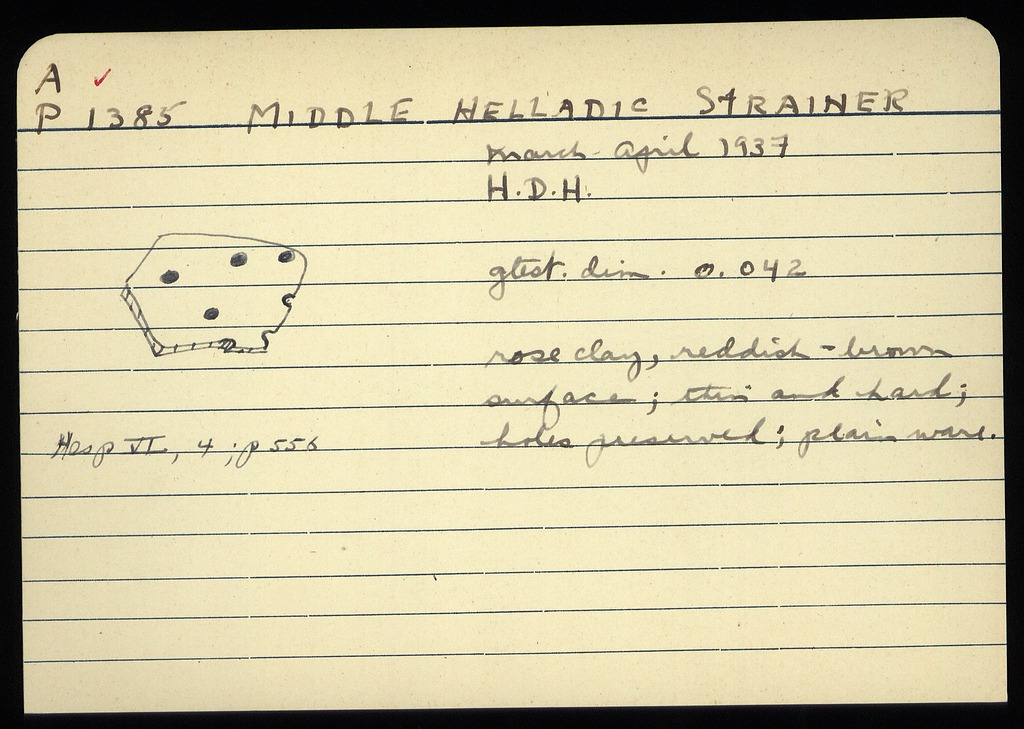 A ✓
P 1385 MIDDLE HELLADIC STRAINER
March - April 1937
H.D.H.
gtest. dim. 0.042
rose clay, reddish-brown
surface; thin and hard;
holes preserved; plain ware.
Hesp VI, 4; p 556